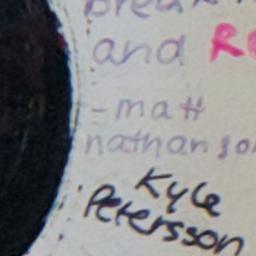 break
and Re
- matt
nathanson
Kyle
Petersson